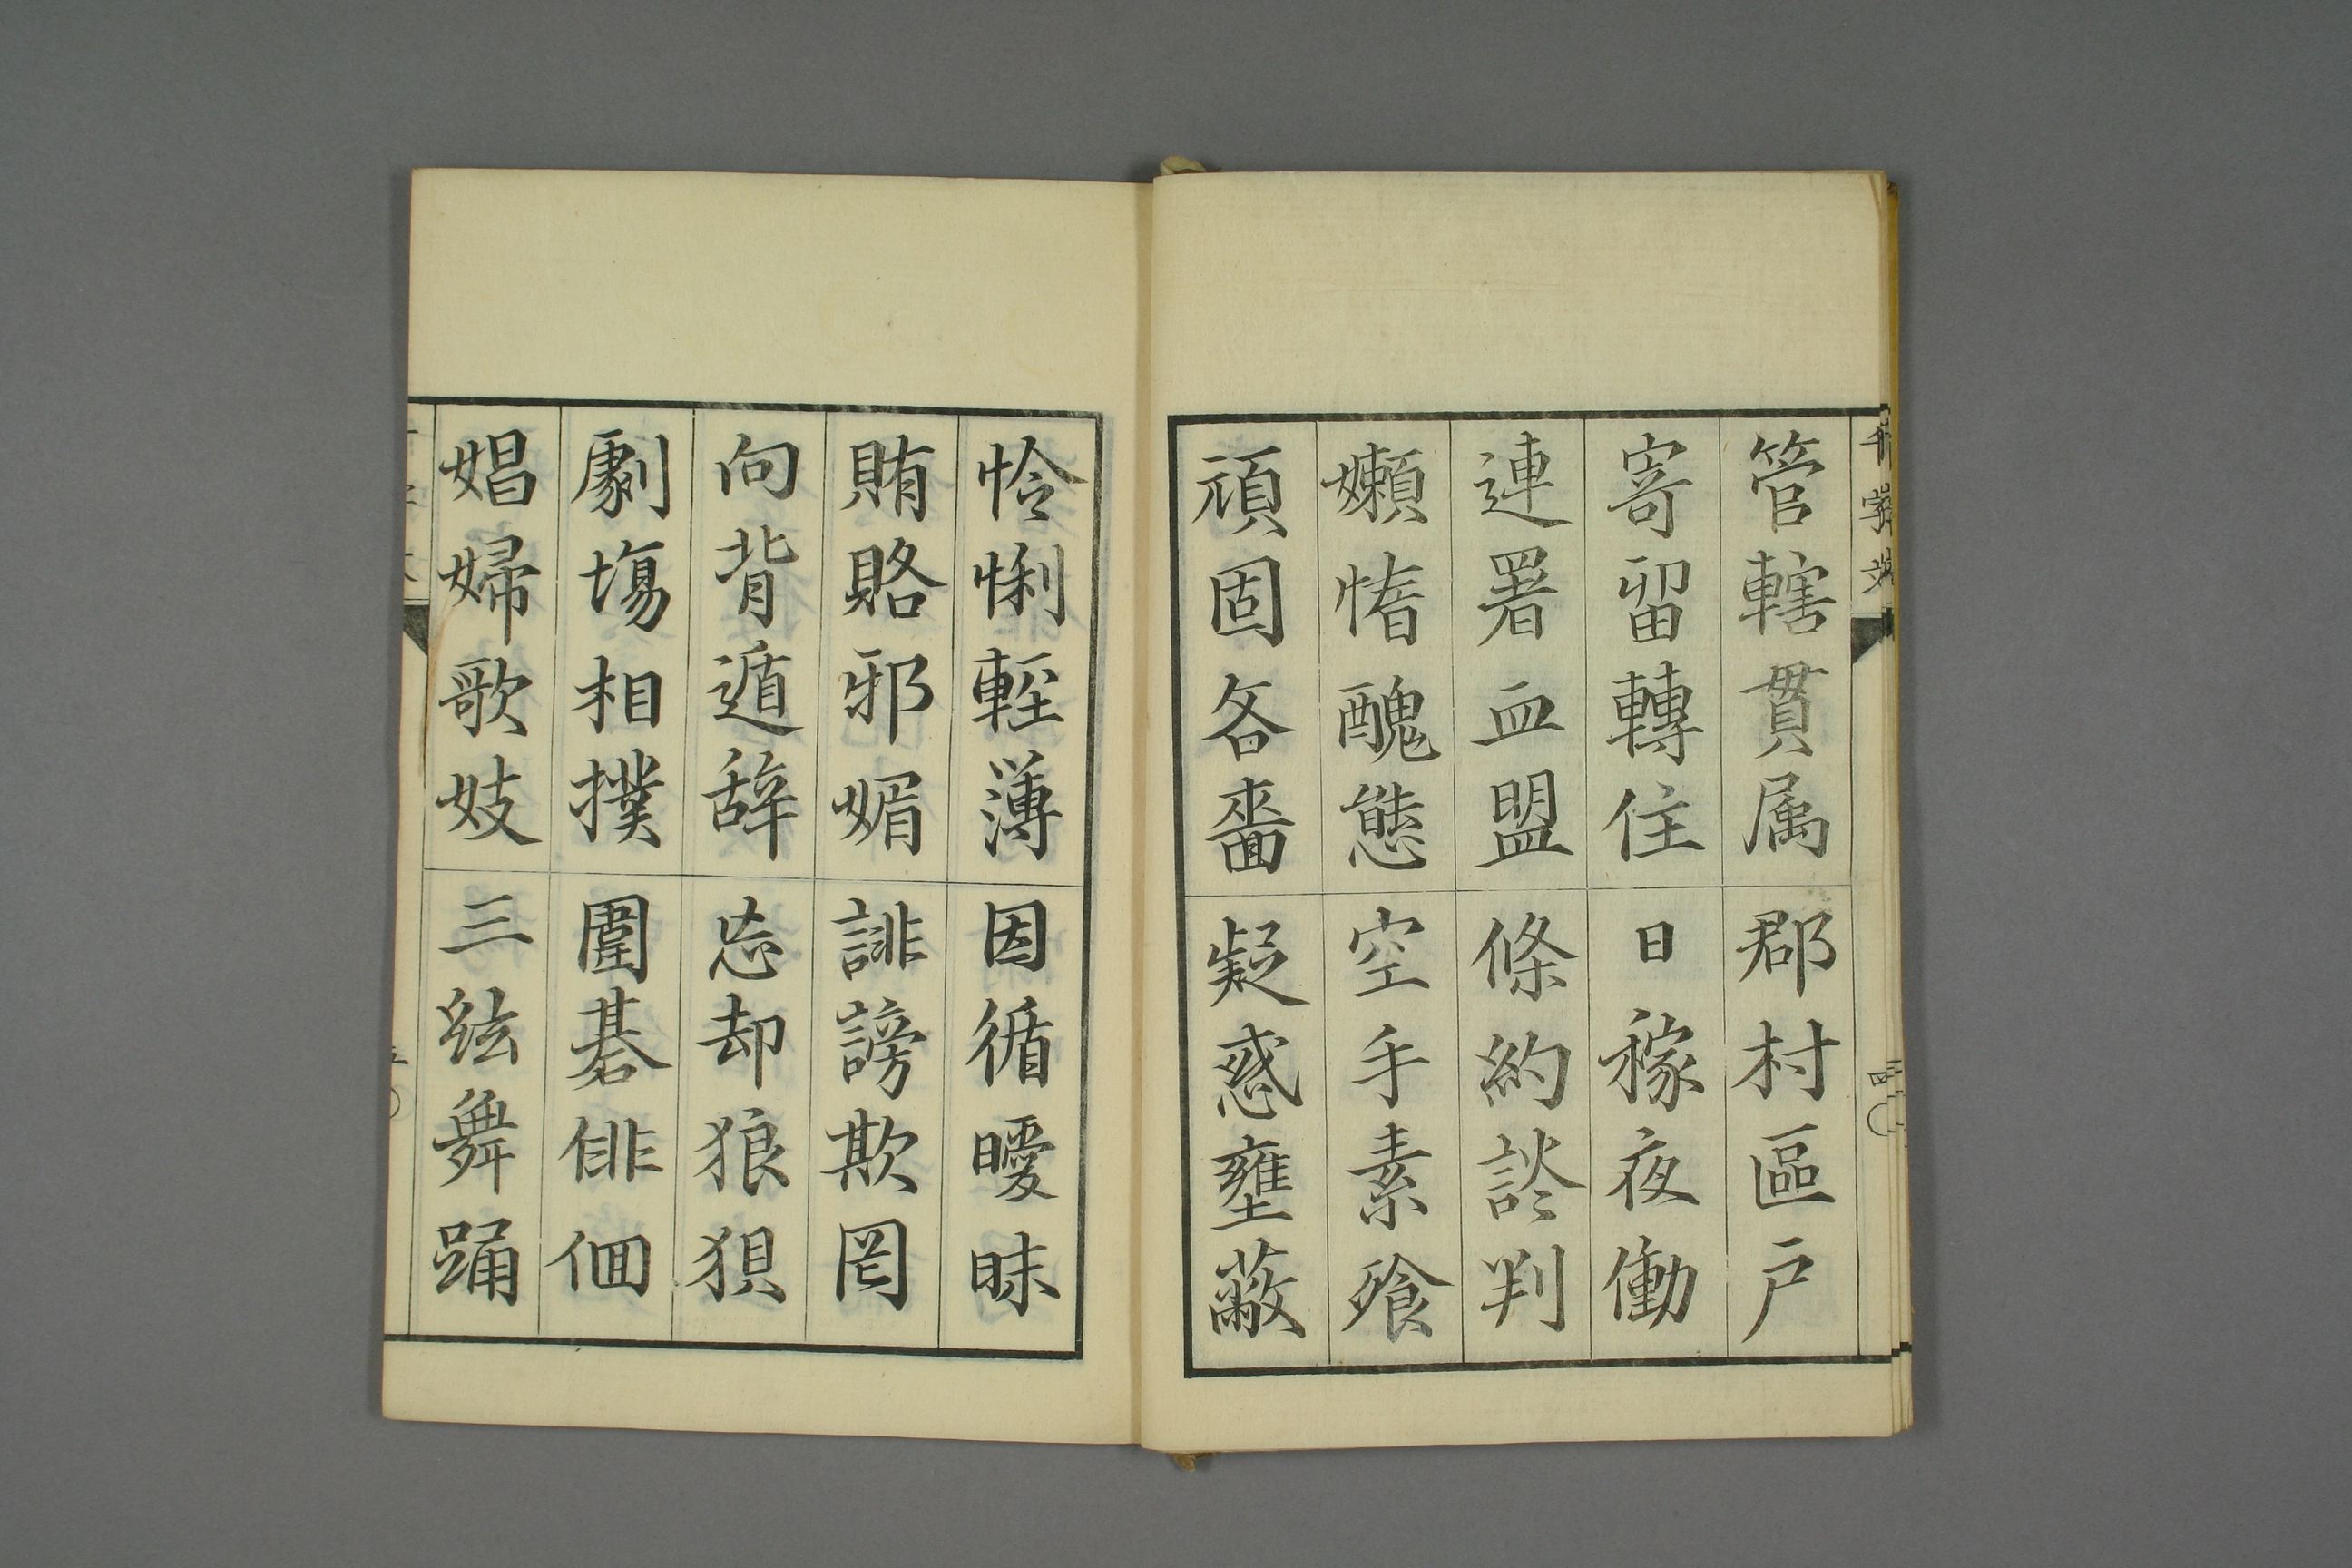 管轄貫属 郡村區戸
寄留轉住 日稼夜働
連署血盟 條約談判
嬾惰醜態 空手素飧
頑固吝嗇 疑惑壅蔽
怜悧輕薄 因循曖昧
賄賂邪媚 誹謗欺罔
向背遁辞 忘却狼狽
劇塲相撲 圍碁俳佪
娼婦歌妓 三絃舞踊